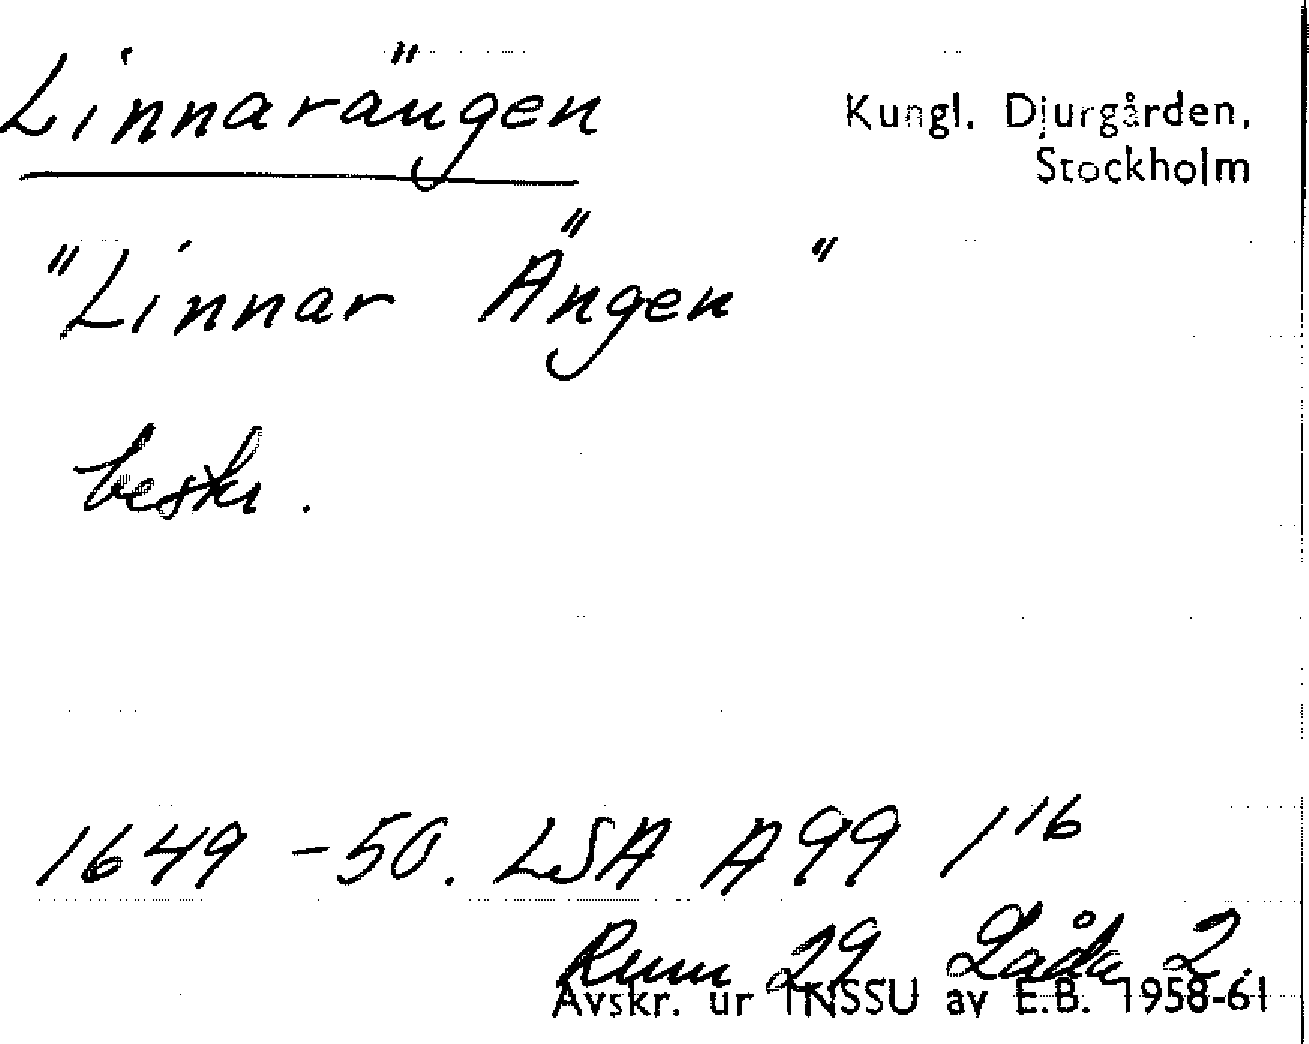 Linnarängen
Kungl. Djurgården,
Stockholm
"Linnar Ängen "
beskr.
1649-50. LSA A99 1¹⁶
Rum 29 Låda 2.
Avskr. ur INSSU av E.B. 1958-61